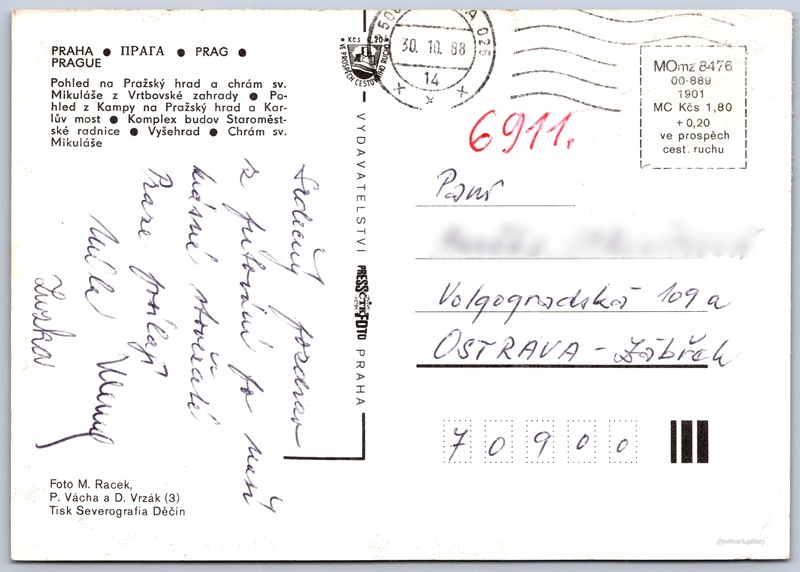 PRAHA ● ПРАГА ● PRAG ●
PRAGUE
Pohled na Pražský hrad a chrám sv.
Mikuláše z Vrtbovské zahrady ● Po-
hled z Kampy na Pražský hrad a Kar-
lův most ● Komplex budov Staroměst-
ské radnice ● Vyšehrad ● Chrám sv.
Mikuláše
Srdečný pozdrav
z putování po naší
krásné stověžaté
Praze posílají
Míla
Zuzka
Foto M. Racek,
P. Vácha a D. Vrzák (3)
Tisk Severografia Děčín
VYDAVATELSTVÍ PRESSFOTO PRAHA
ČTK
Kčs 0,20
VE PROSPĚCH CESTOVNÍHO RUCHU
30.10.88
14
6911.
MOmz 8476
00-889
1901
MC Kčs 1,80
+ 0,20
ve prospěch
cest. ruchu
Paní
Volgogradská 109a
OSTRAVA - Zábřeh
70900